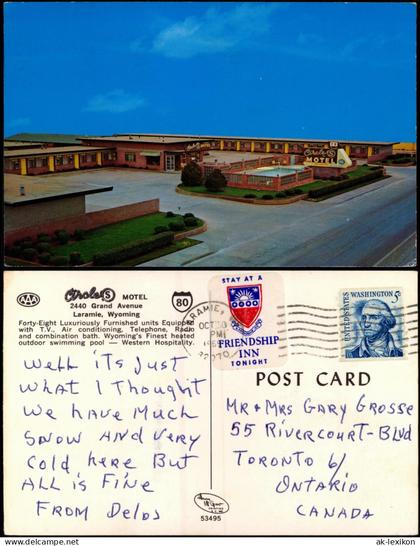 Circle S
MOTEL
AAA
Circle S MOTEL
2440 Grand Avenue
Laramie, Wyoming
80
Forty-Eight Luxuriously Furnished units Equipped
with T.V., Air conditioning, Telephone, Radio
and combination bath. Wyoming's Finest heated
outdoor swimming pool — Western Hospitality.
STAY AT A
FRIENDSHIP
INN
TONIGHT
LARAMIE
OCT
PM
82070
UNITED STATES
WASHINGTON 5c
POST CARD
WEll iTs JusT
WHAT I THougHT
WE HAVE MucH
SNOW AND VERY
Cold HERE BuT
All is FiNE
FROM DElos
MR + MRS GARY GROSSE
55 RiVERCOURT-BLVd
TORONTO 6/
ONTARiO
CANADA
53495
www.ak-ansichtskarten.de
ak-lexikon.com